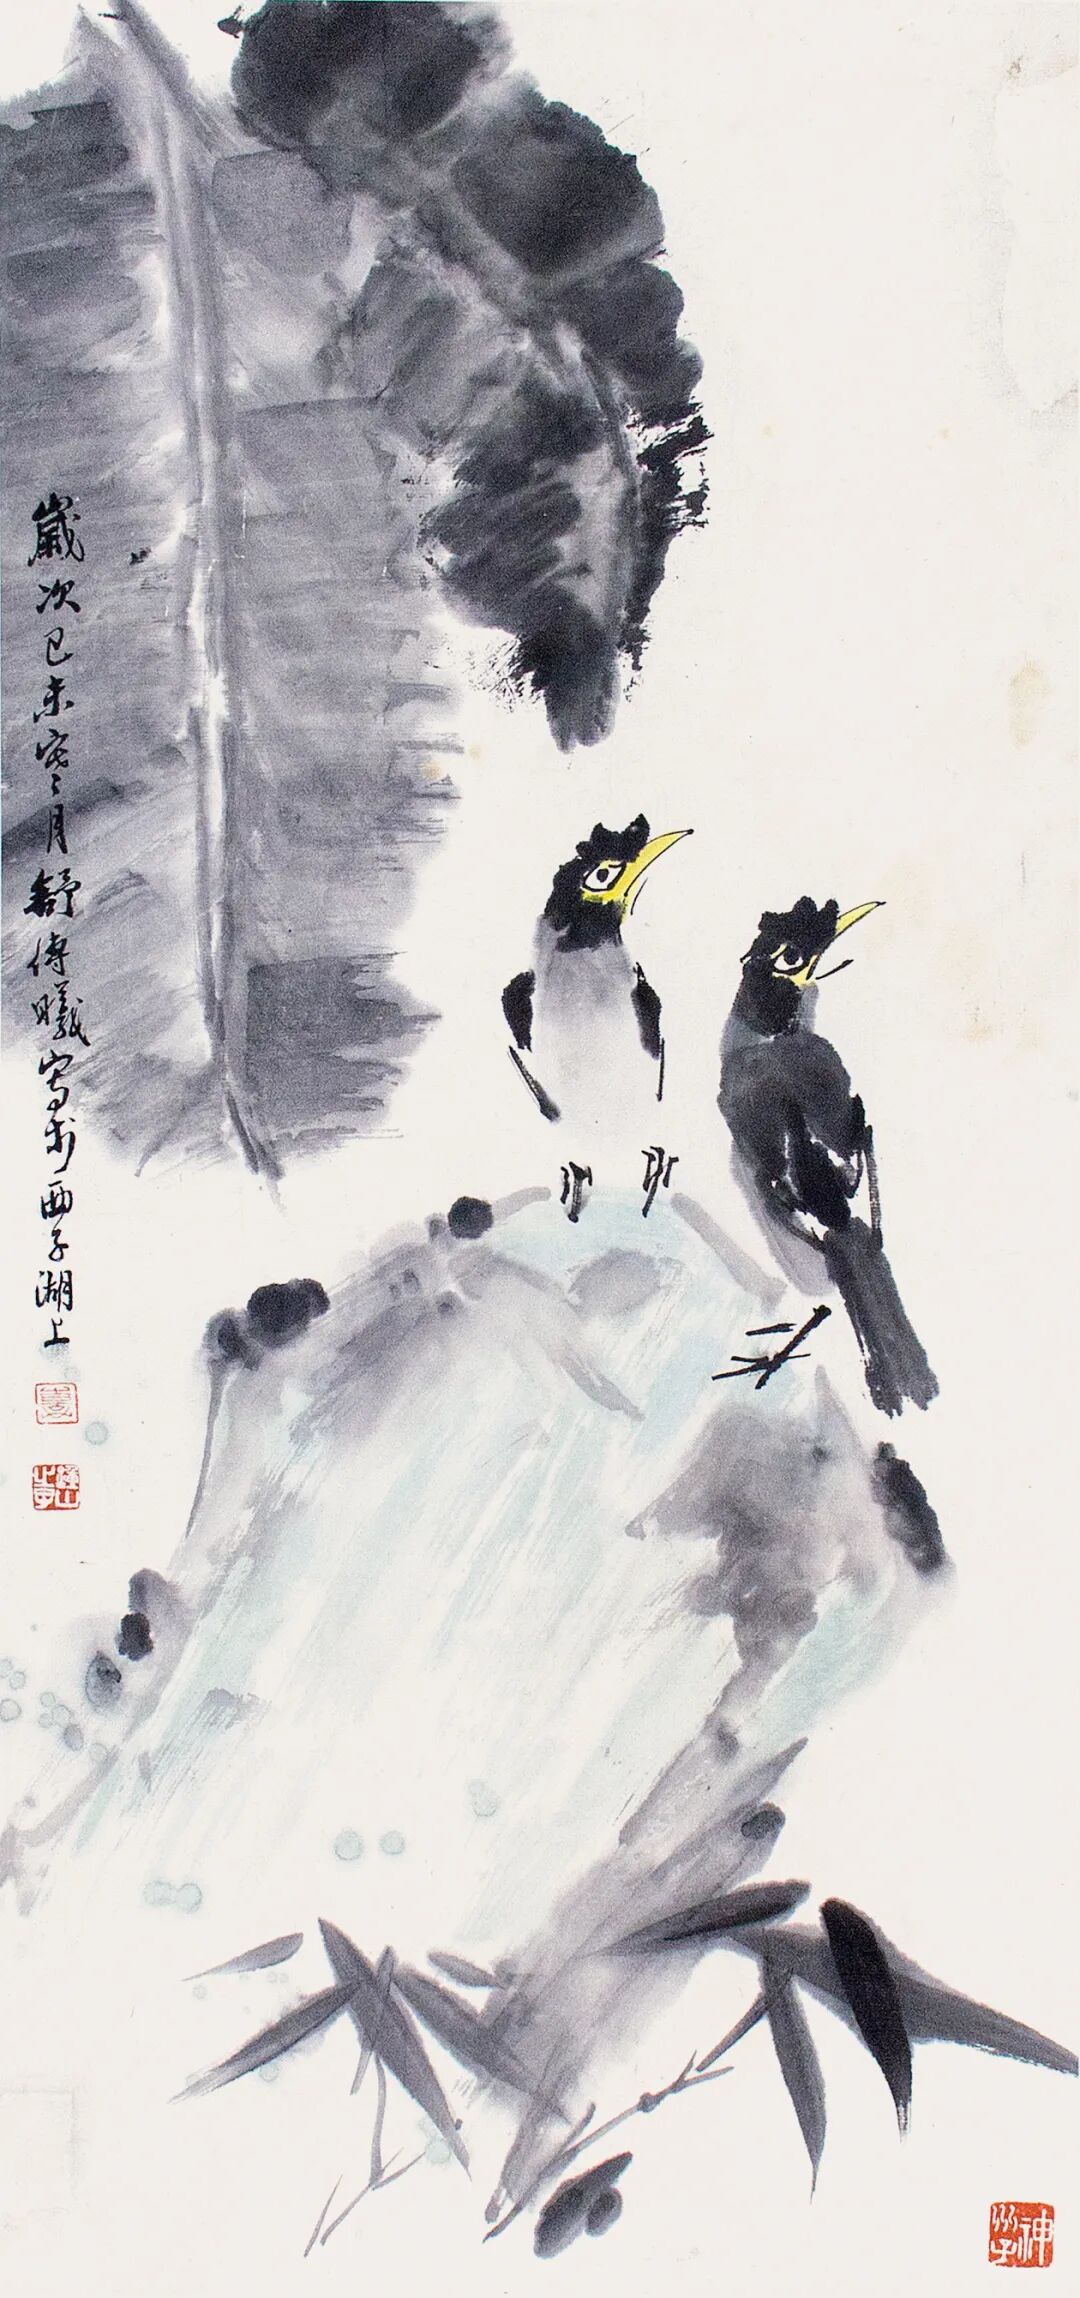 歲次己未寒月舒傳曦寫於西子湖上
神州